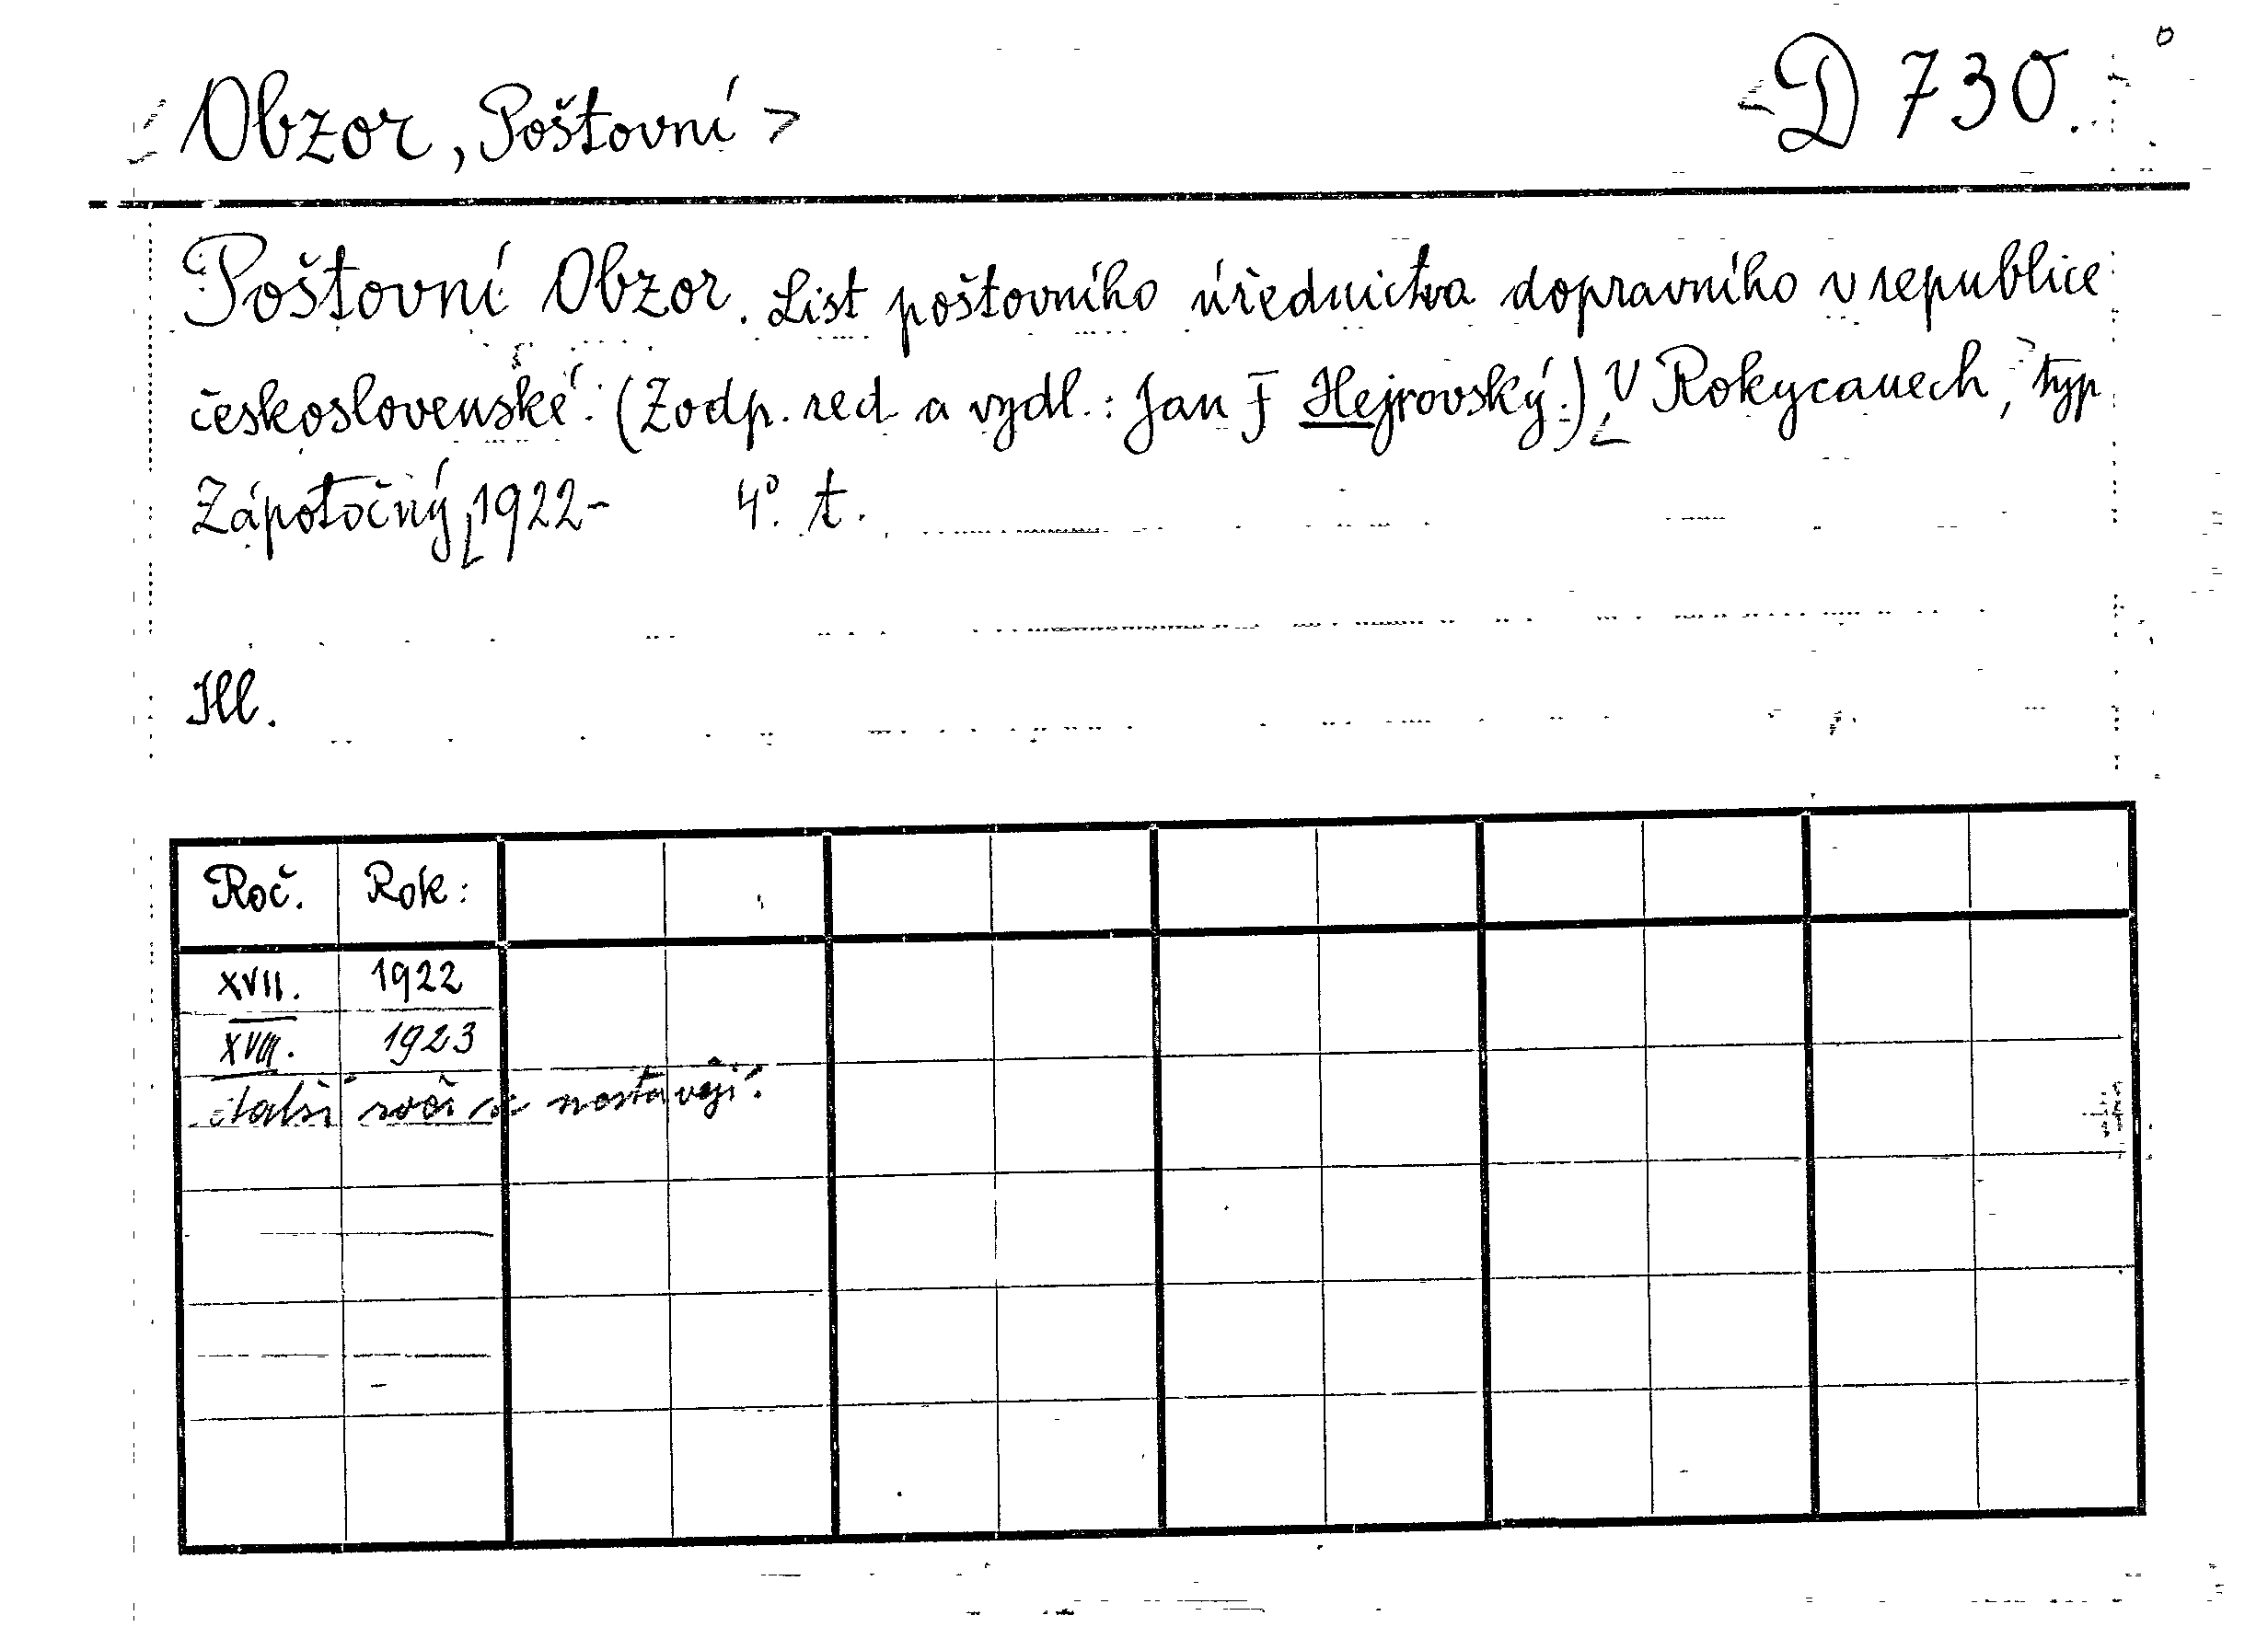 Obzor, Poštovní >
D 730.
Poštovní Obzor. List poštovního úřednictva dopravního v republice
československé. (Zodp. red. a vydl.: Jan F Hejrovský.) V Rokycanech, typ
Zápotočný, 1922- 4°. t.
Ill.
Roč. Rok:
XVII. 1922
XVIII. 1923
další roč. se nestavějí.